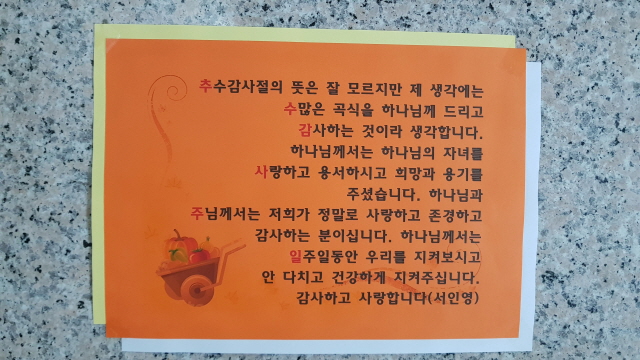 추수감사절의 뜻은 잘 모르지만 제 생각에는
수많은 곡식을 하나님께 드리고
감사하는 것이라 생각합니다.
하나님께서는 하나님의 자녀를
사랑하고 용서하시고 희망과 용기를
주셨습니다. 하나님과
주님께서는 저희가 정말로 사랑하고 존경하고
감사하는 분이십니다. 하나님께서는
일주일동안 우리를 지켜보시고
안 다치고 건강하게 지켜주십니다.
감사하고 사랑합니다(서인영)